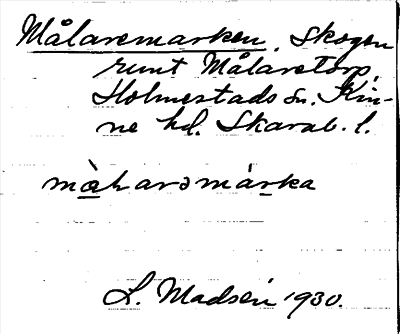 Målaremarken. Skogen
runt Målaretorp,
Holmestads sn. Kin-
ne hd. Skarab. l.
màlɑrəmàrka
L. Madsén 1930.